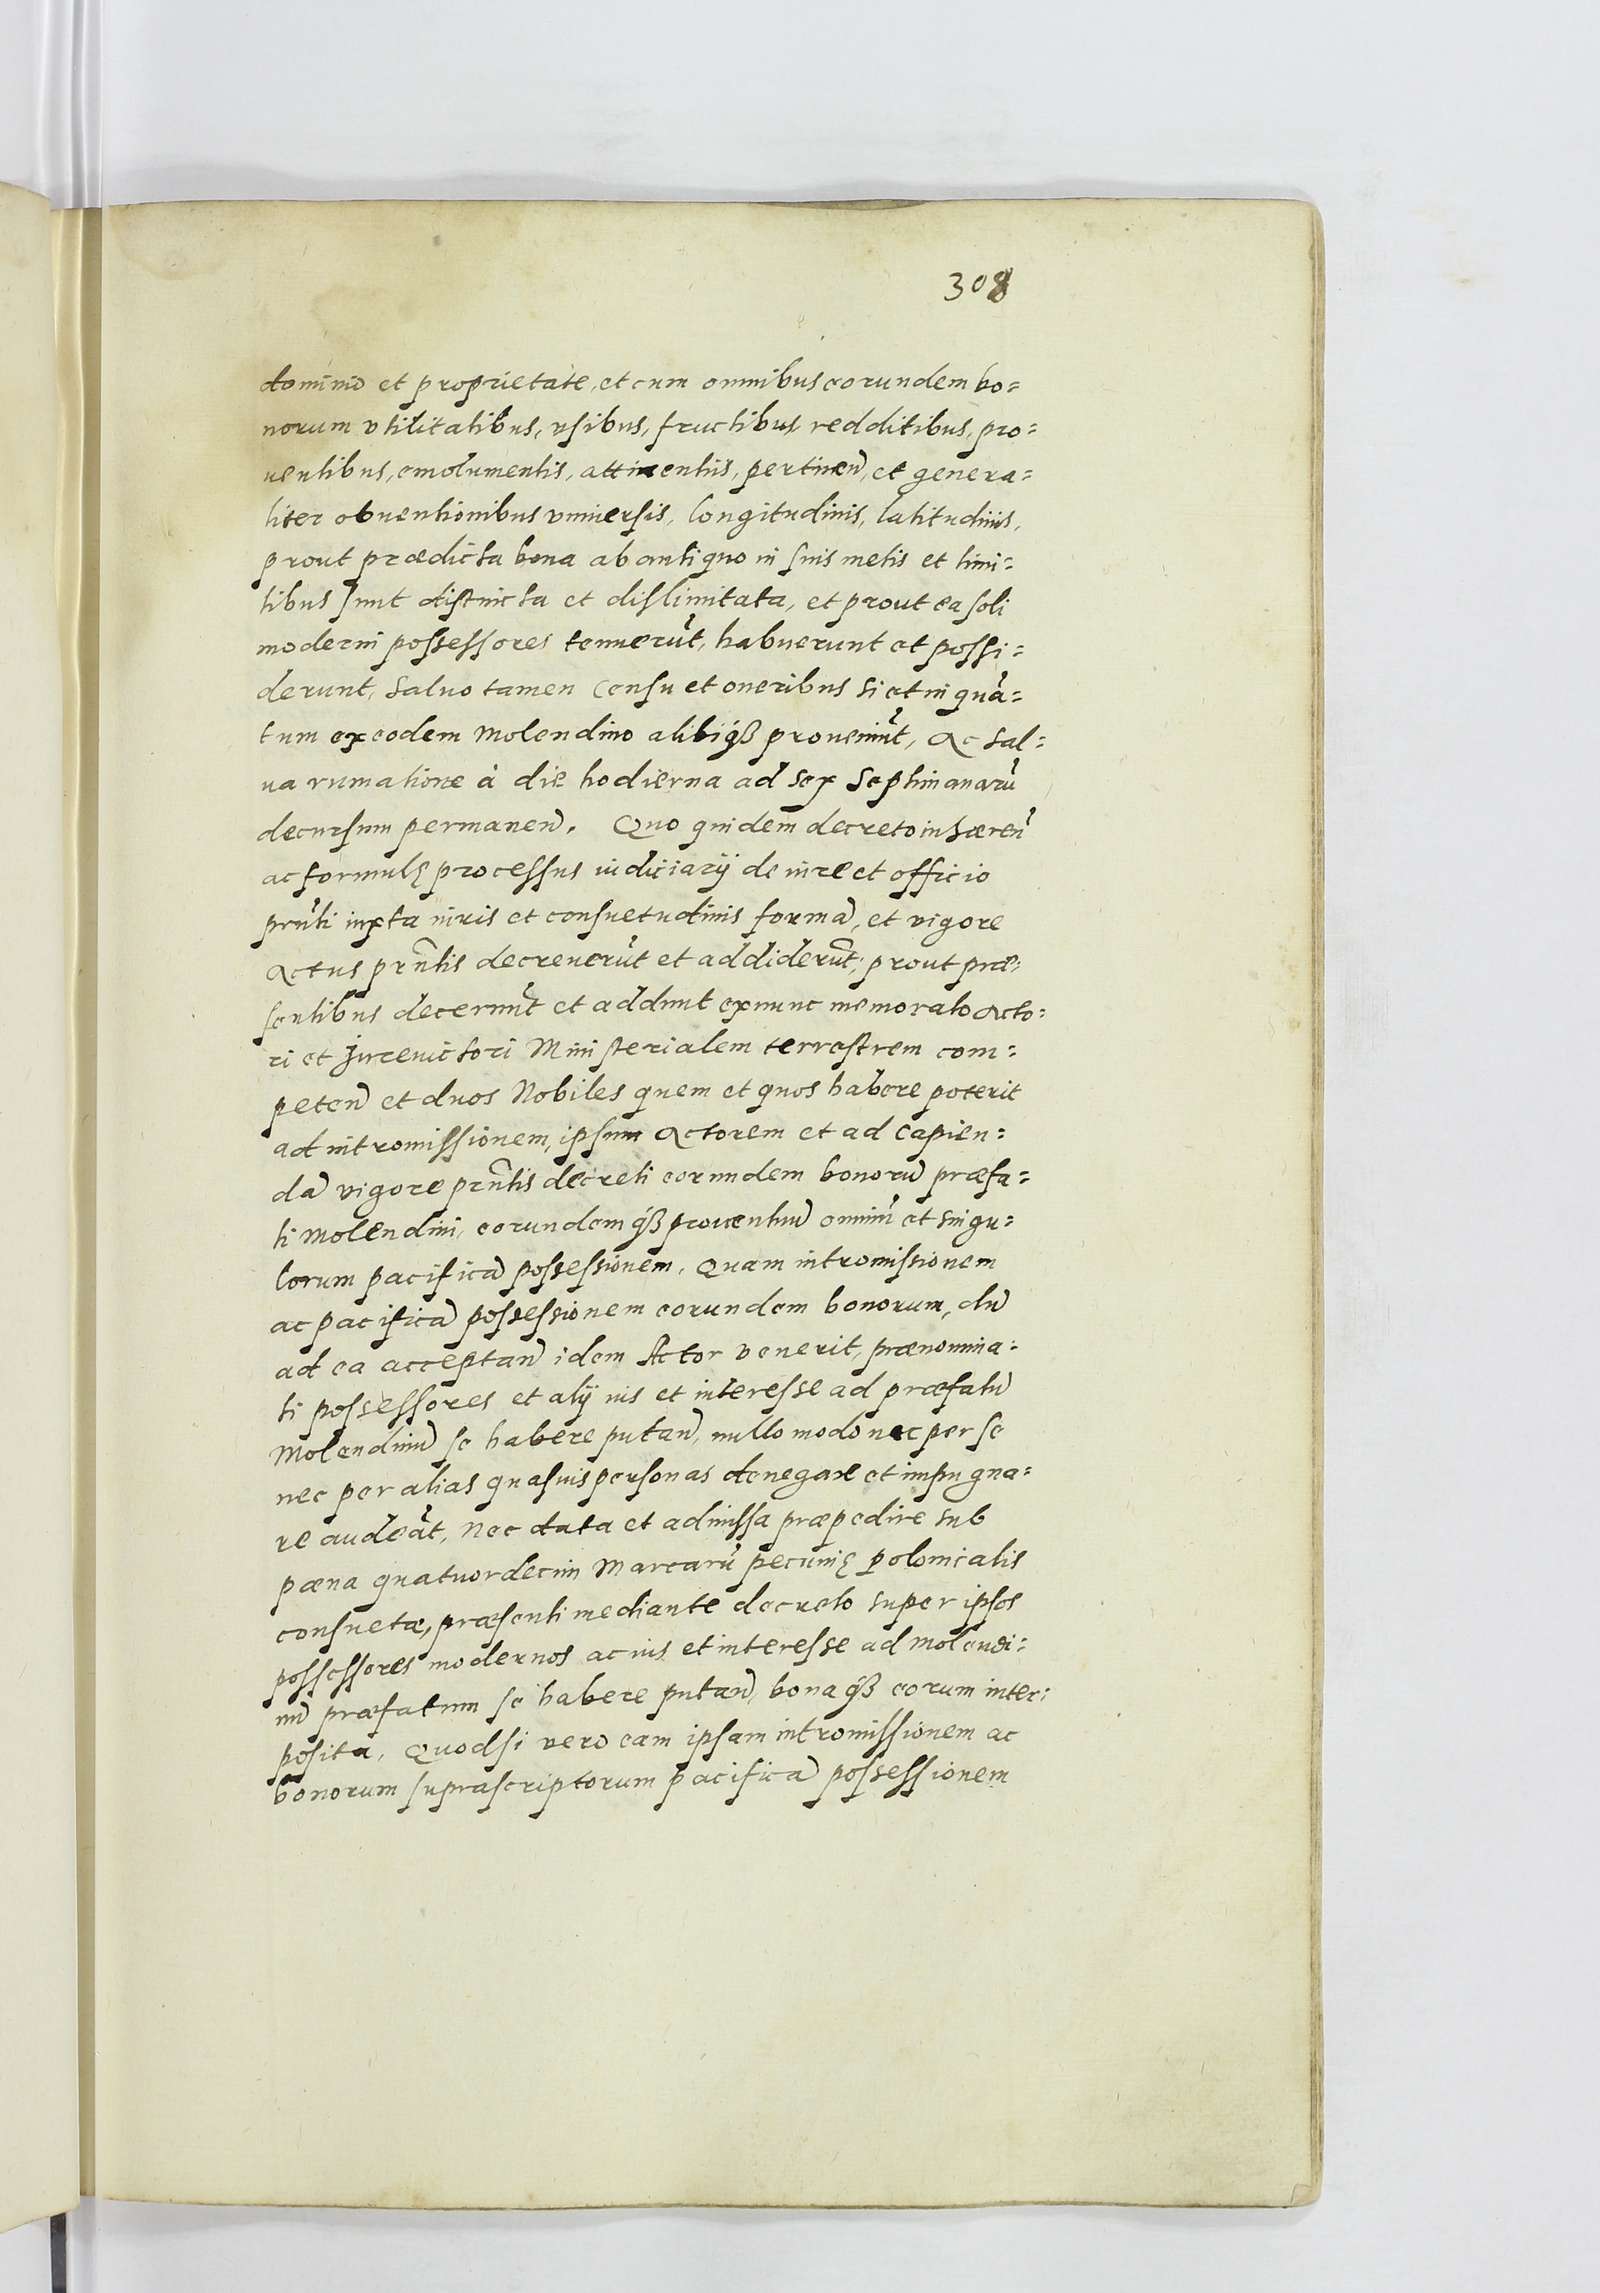 308
dominio et proprietate, et cum omnibus eorundem bo=
norum vtilitatibus, vsibus, fructibus redditibus, pro=
uentibus, emolumentis, attinentiis, pertineñ, et genera=
liter obuentionibus vniuersis, longitudinis, latitudinis,
prout prædicta bona ab antiquo in suis metis et limi=
tibus sunt distincta et dislimitata, et prout ea soli
moderni possessores tenuerũt, habuerunt et possi=
derunt, saluo tamen censu et oneribus si et in quã=
tum ex eodem Molendino alibiqȝ proueniũt, Ac sal=
ua rumatione à die hodierna ad sex septimanarũ
decursum permaneñ. Quo quidem decreto insæreñ
ac formulę processus iudiciarij de iure et officio
prñti iuxta iuris et consuetudinis formã, et vigore
Actus prñtis decreuerũt et addiderũt, prout præ=
sentibus decernũt et addunt exnunc memorato Acto=
ri et Jureuictori Ministerialem terrestrem com=
peteñ et duos Nobiles quem et quos habere poterit
ad intromissionem, ipsum Actorem et ad capien=
dã vigore prñtis decreti eorundem bonorũ præfa=
ti Molendini, eorundemqȝ prouentuũ omniũ et singu=
lorum pacificã possessionem. Quam intromissionem
ac pacificã possessionem eorundem bonorum, dũ
ad ea acceptañ idem Actor venerit, prænomina=
ti possessores et alij ius et interesse ad præfatũ
Molendinũ se habere putañ, nullo modo nec per se
nec per alias quasuis personas denegare et impugna=
re audeãt, nec data et admissa præpedire sub
pæna quatuordecim Marcarũ pecunię polonicalis
consuetæ, præsenti mediante decreto super ipsos
possessores modernos ac ius et interesse ad Molendi=
nũ præfatum se habere putañ, bonaqȝ eorum inter=
posita. Quodsi vero eam ipsam intromissionem ac
bonorum suprascriptorum pacificã possessionem